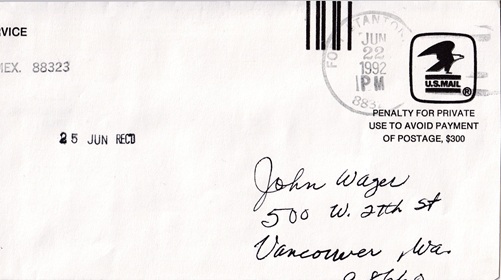 RVICE
MEX. 88323
FO STANTON
JUN
22
1992
1PM
883
U.S.MAIL
®
PENALTY FOR PRIVATE
USE TO AVOID PAYMENT
OF POSTAGE, $300
25 JUN REC'D
John Wager
500 W. 27th St
Vancouver, Wa.